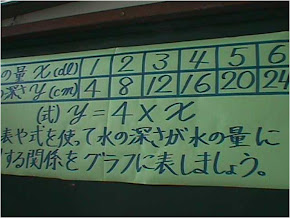 の量 x(dl) 1 2 3 4 5 6
深さ y(cm) 4 8 12 16 20 24
(式) y=4×x
表や式を使って水の深さが水の量に
する関係をグラフに表しましょう。